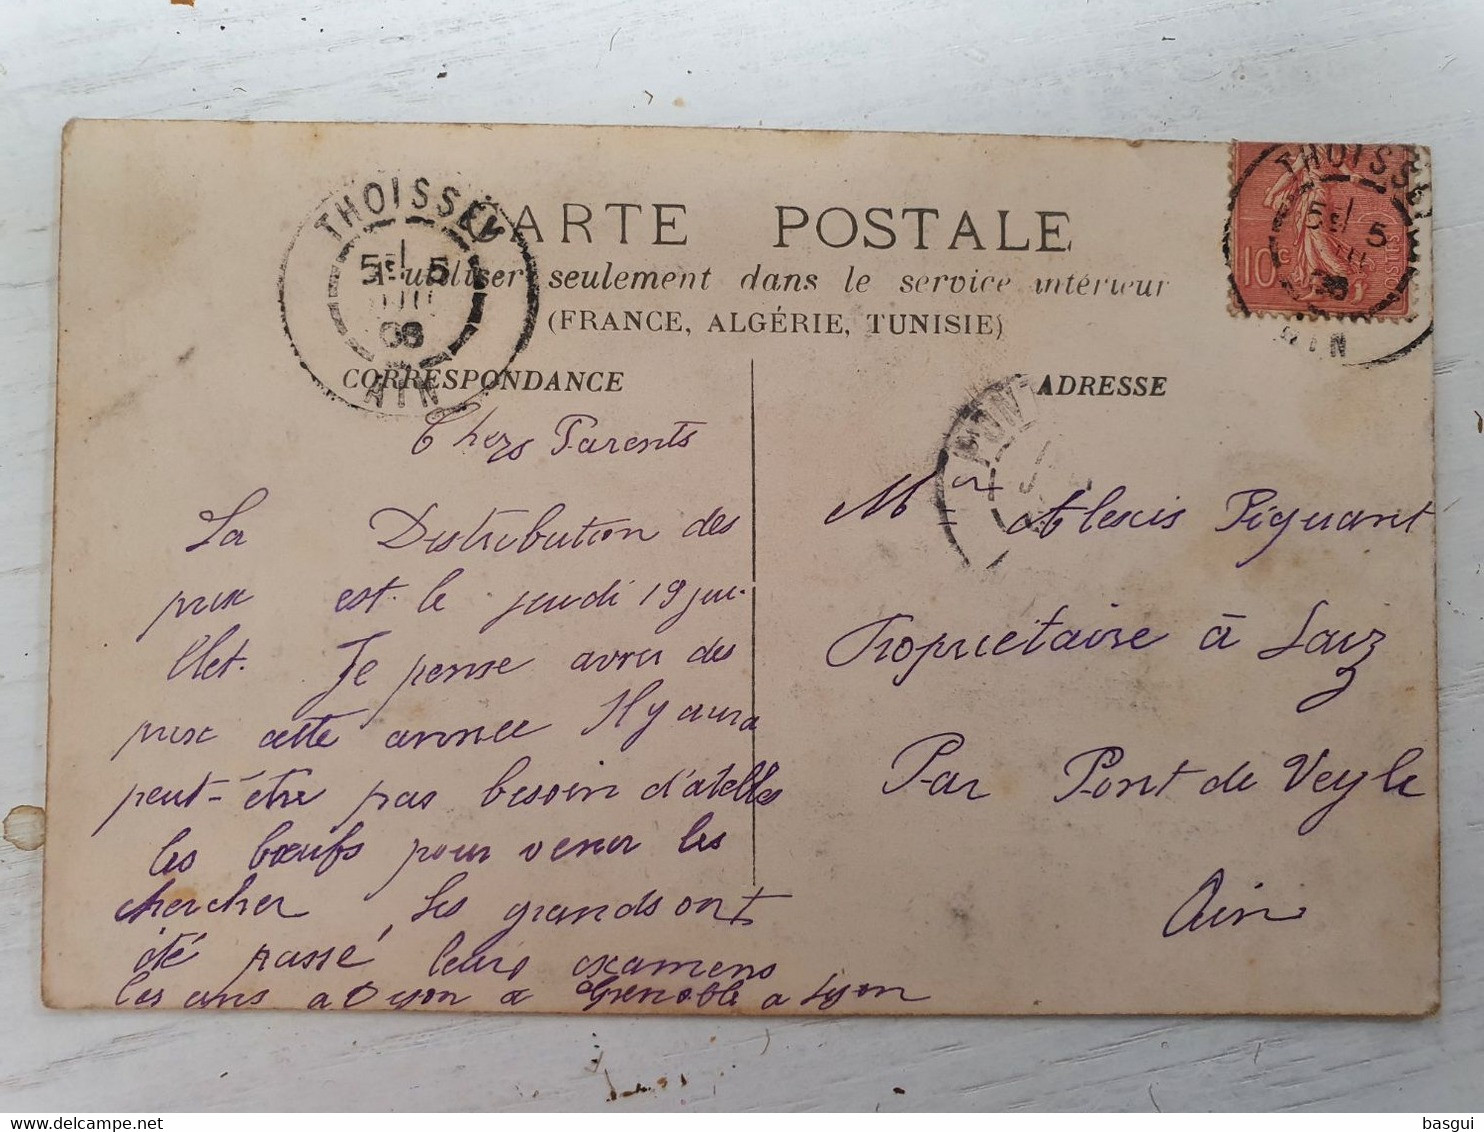 CARTE POSTALE
A utiliser seulement dans le service intérieur
(FRANCE, ALGÉRIE, TUNISIE)
THOISSEY
5 5
06
AIN
THOISSEY
5 5
06
AIN
10c
POSTES
CORRESPONDANCE
Chers Parents
La Distribution des
prix est le jeudi 19 jui-
llet. Je pense avoir des
prix cette année Il y aura
peut-être pas besoin d'atelles
les bœufs pour venir les
chercher, Les grands ont
été passé leurs examens
les uns a Dijon a Grenoble a Lyon
ADRESSE
PONT
Mr Alexis Piguant
Propriétaire à Laiz
Par Pont de Veyle
Ain
basgui